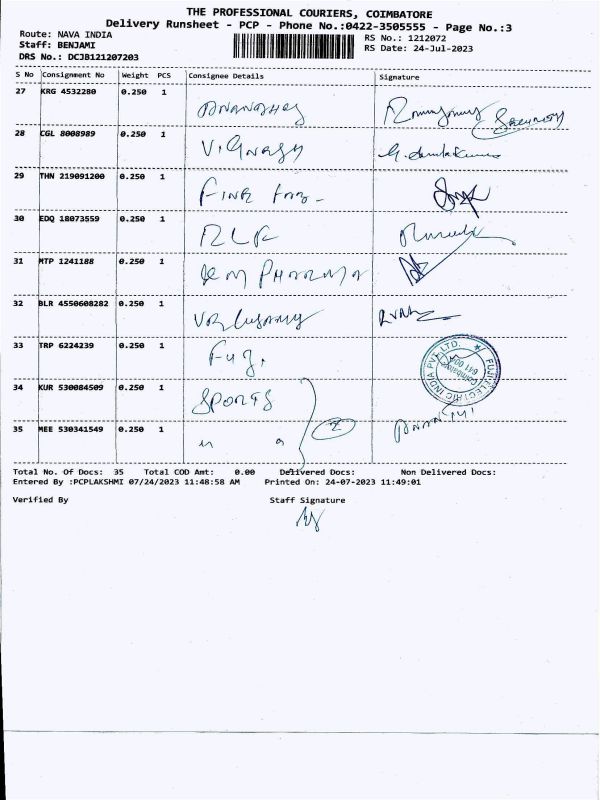 THE PROFESSIONAL COURIERS, COIMBATORE
Delivery Runsheet - PCP - Phone No.:0422-3505555 - Page No.:3
Route: NAVA INDIA RS No.: 1212072
Staff: BENJAMI RS Date: 24-Jul-2023
DRS No.: DCJB121207203
S No Consignment No Weight PCS Consignee Details Signature
27 KRG 4532280 0.250 1
28 CGL 8008989 0.250 1
29 THN 219091200 0.250 1
30 EDQ 18073559 0.250 1 RLF
31 MTP 1241188 0.250 1 KM PHARMA
32 BLR 4550608282 0.250 1
33 TRP 6224239 0.250 1 Fuj.
FUJI ELECTRIC INDIA PVT. LTD. Coimbatore
34 KUR 530084509 0.250 1 SPORTS 2
35 MEE 530341549 0.250 1
Total No. Of Docs: 35 Total COD Amt: 0.00 Delivered Docs: Non Delivered Docs:
Entered By :PCPLAKSHMI 07/24/2023 11:48:58 AM Printed On: 24-07-2023 11:49:01
Verified By Staff Signature